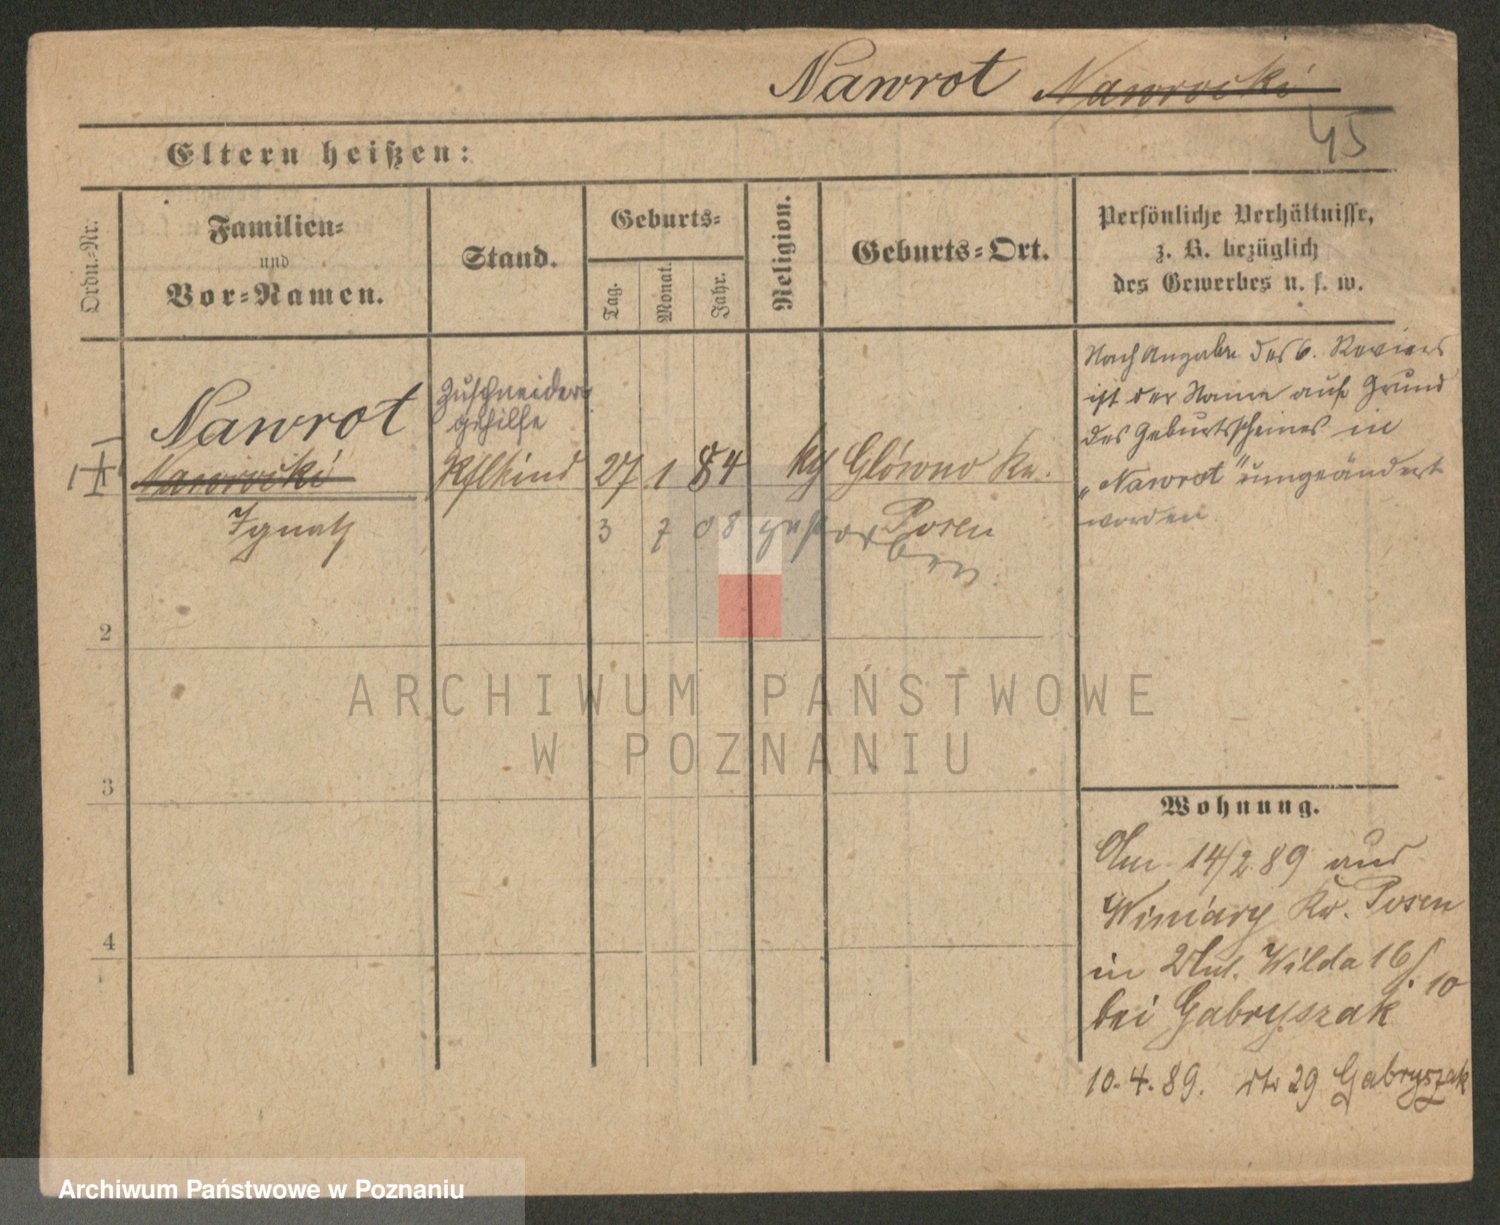 Nawrot Nawrocki
45
Eltern heißen:
Ordn.-Nr.
Familien=
und
Vor=Namen.
Stand.
Geburts=
Tag.
Monat.
Jahr.
Religion.
Geburts=Ort.
Persönliche Verhältnisse,
z. B. bezüglich
des Gewerbes u. s. w.
Nawrot
Nawrocki
Ignatz
Zuschneider=
gehilfe
27 1 84
Główno Kr.
Posen
3 7 08 gestor
ben
Nach Angabe des 6. Reviers
ist der Name auf Grund
des Geburtsscheines in
„Nawrot" umgeändert
worden
2
3
4
Wohnung.
Am 14/2 89 aus
Winiary Kr. Posen
in Wilda 16/10
bei Gabryszak
10.4.89. 29 Gabryszak
ARCHIWUM PAŃSTWOWE
W POZNANIU
Archiwum Państwowe w Poznaniu